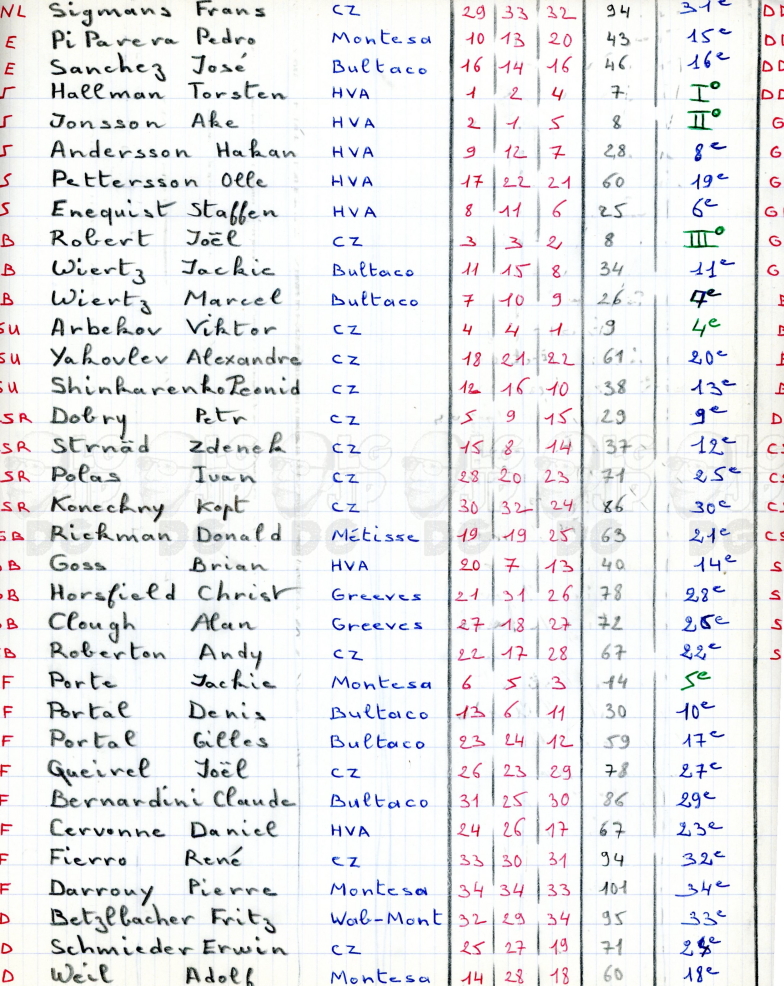 NL Sigmans Frans CZ 29 33 32 94 31e
E Pi Parera Pedro Montesa 10 13 20 43 15e
E Sanchez José Bultaco 16 14 16 46 16e
S Hallman Torsten HVA 1 2 4 7 I°
S Jonsson Ake HVA 2 1 5 8 II° G
S Andersson Hakan HVA 9 12 7 28 8e G
S Pettersson Olle HVA 17 22 21 60 19e G
S Enequist Staffen HVA 8 11 6 25 6e G
B Robert Joël CZ 3 3 2 8 III° G
B Wiertz Jackie Bultaco 11 15 8 34 11e G
B Wiertz Marcel Bultaco 7 10 9 26 7e
SU Arbekov Viktor CZ 4 4 1 9 4e
SU Yakovlev Alexandre CZ 18 21 22 61 20e
SU Shinkarenko Leonid CZ 12 16 10 38 13e
SR Dobry Petr CZ 5 9 15 29 9e D
SR Strnäd Zdenek CZ 15 8 14 37 12e
SR Polas Ivan CZ 28 20 23 71 25e
SR Konechny Kopt CZ 30 32 24 86 30e
GB Rickman Donald Métisse 19 19 25 63 21e
B Goss Brian HVA 20 7 13 40 14e S
B Horsfield Christ Greeves 21 31 26 78 28e S
B Clough Alan Greeves 27 18 27 72 26e S
B Roberton Andy CZ 22 17 28 67 22e S
F Porte Jackie Montesa 6 5 3 14 5e
F Portal Denis Bultaco 13 6 11 30 10e
F Portal Gilles Bultaco 23 24 12 59 17e
F Queirel Joël CZ 26 23 29 78 27e
F Bernardini Claude Bultaco 31 25 30 86 29e
F Cervonne Daniel HVA 24 26 17 67 23e
F Fierro René CZ 33 30 31 94 32e
F Darrouy Pierre Montesa 34 34 33 101 34e
D Betzlbacher Fritz Wab-Mont 32 29 34 95 33e
D Schmieder Erwin CZ 25 27 19 71
D Weil Adolf Montesa 14 28 18 60 18e